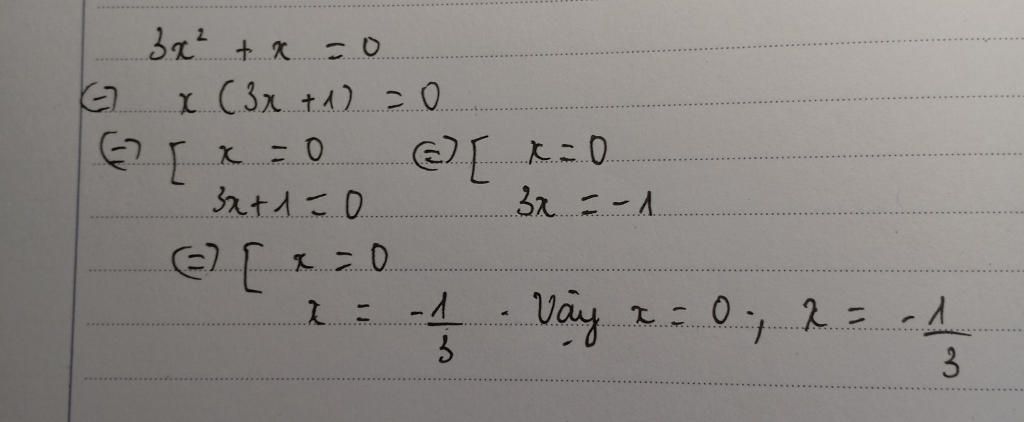 3x² + x = 0
⇔ x (3x + 1) = 0
⇔ [ x = 0 ⇔ [ x = 0
3x + 1 = 0 3x = -1
⇔ [ x = 0
x = -1/3 . Vậy x = 0 ; x = -1/3